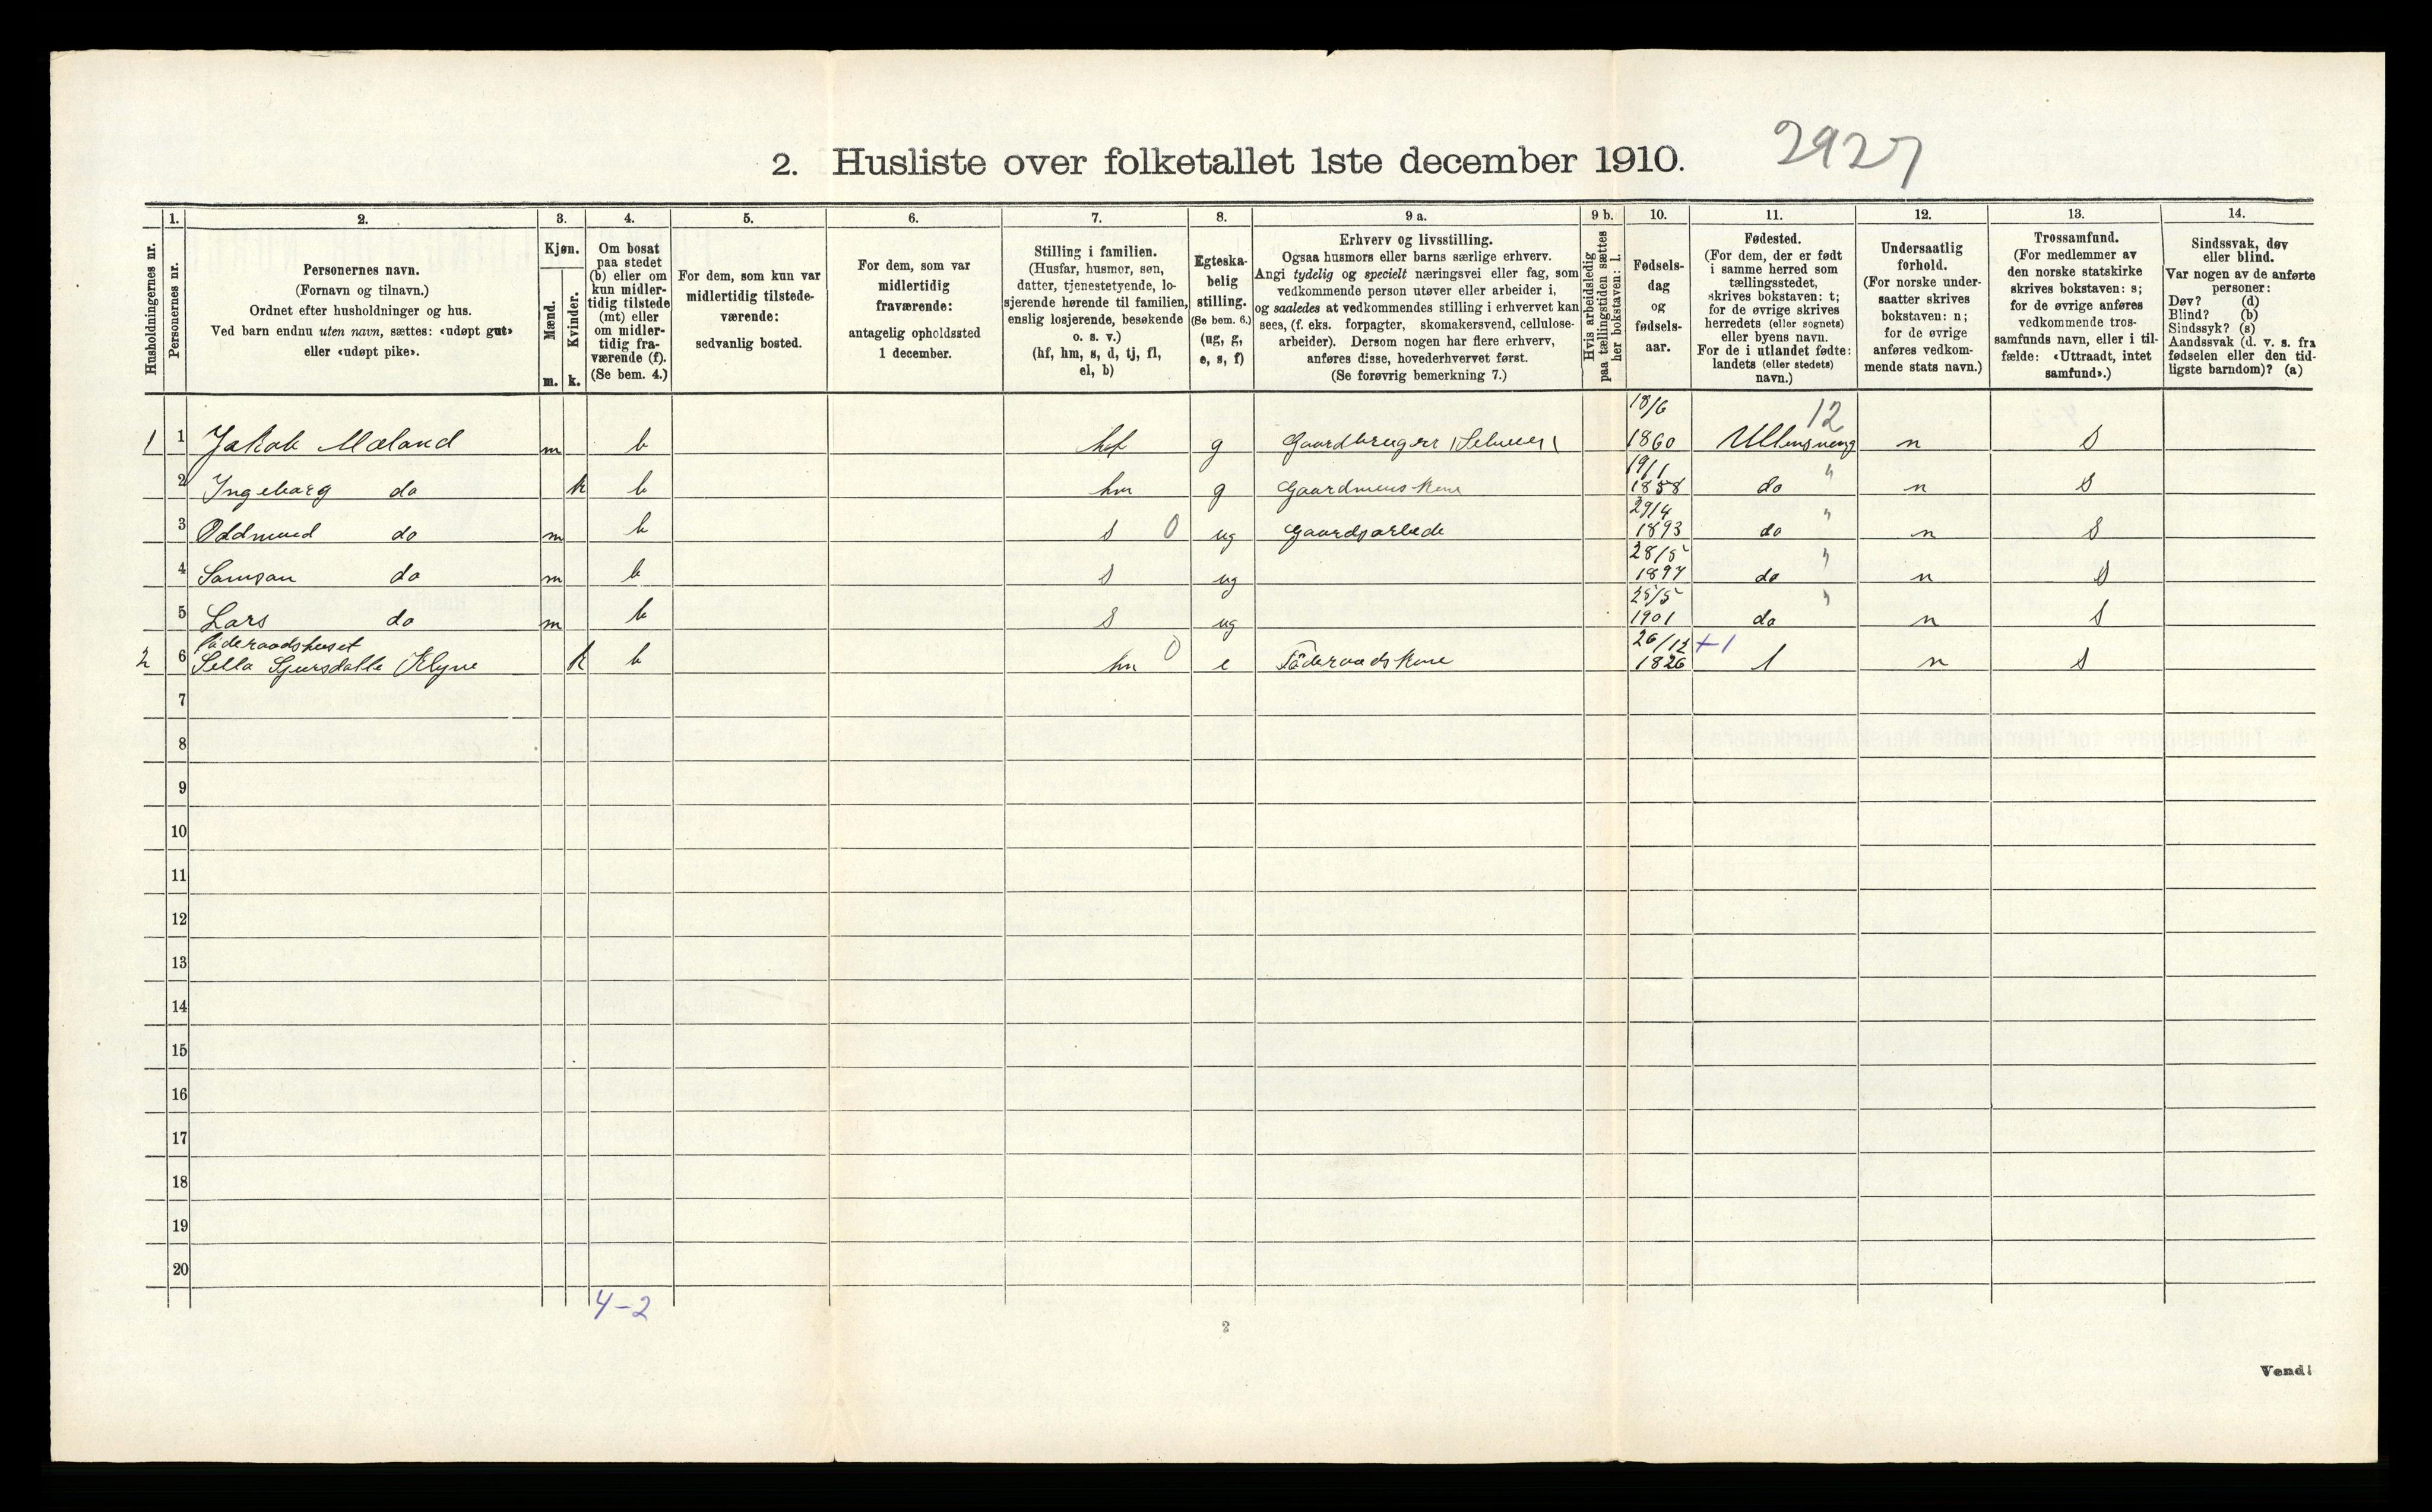 2. Husliste over folketallet 1ste december 1910. 2927
1. 2. 3. 4. 5. 6. 7. 8. 9 a. 9 b. 10. 11. 12. 13. 14.
Husholdningernes nr.
Personernes nr.
Personernes navn.
(Fornavn og tilnavn.)
Ordnet efter husholdninger og hus.
Ved barn endnu uten navn, sættes: «udøpt gut»
eller «udøpt pike».
Kjøn.
Mænd.
Kvinder.
m. k.
Om bosat
paa stedet
(b) eller om
kun midler-
tidig tilstede
(mt) eller
om midler-
tidig fra-
værende (f).
(Se bem. 4.)
For dem, som kun var
midlertidig tilstede-
værende:
sedvanlig bosted.
For dem, som var
midlertidig
fraværende:
antagelig opholdssted
1 december.
Stilling i familien.
(Husfar, husmor, søn,
datter, tjenestetyende, lo-
sjerende hørende til familien,
enslig losjerende, besøkende
o. s. v.)
(hf, hm, s, d, tj, fl,
el, b)
Egteska-
belig
stilling.
(Se bem. 6.)
(ug, g,
e, s, f)
Erhverv og livsstilling.
Ogsaa husmors eller barns særlige erhverv.
Angi tydelig og specielt næringsvei eller fag, som
vedkommende person utøver eller arbeider i,
og saaledes at vedkommendes stilling i erhvervet kan
sees, (f. eks. forpagter, skomakersvend, cellulose-
arbeider). Dersom nogen har flere erhverv,
anføres disse, hovederhvervet først.
(Se forøvrig bemerkning 7.)
Hvis arbeidsledig
paa tællingstiden sættes
her bokstaven: l.
Fødsels-
dag
og
fødsels-
aar.
Fødested.
(For dem, der er født
i samme herred som
tællingsstedet,
skrives bokstaven: t;
for de øvrige skrives
herredets (eller sognets)
eller byens navn.
For de i utlandet fødte:
landets (eller stedets)
navn.)
Undersaatlig
forhold.
(For norske under-
saatter skrives
bokstaven: n;
for de øvrige
anføres vedkom-
mende stats navn.)
Trossamfund.
(For medlemmer av
den norske statskirke
skrives bokstaven: s;
for de øvrige anføres
vedkommende tros-
samfunds navn, eller i til-
fælde: «Uttraadt, intet
samfund».)
Sindssvak, døv
eller blind.
Var nogen av de anførte
personer:
Døv? (d)
Blind? (b)
Sindssyk? (s)
Aandssvak (d. v. s. fra
fødselen eller den tid-
ligste barndom)? (a)
18/6 12
1 1 Jakob Mæland m b hf g Gaardbruger 1860 Ullensvang n S
19/1 "
2 Ingeborg do k b hm g Gaardmens Kone 1858 do n S
29/4 "
3 Oddmund do m b s 0 ug Gaardsarbeide 1893 do n S
28/5 "
4 Samson do m b s ug 1897 do n S
25/5 "
5 Lars do m b s ug 1901 do n S
föderaadshuset 26/12 +1
2 6 Sella Sjursdatter k b hm 0 e Föderaadskone 1826 n S
7
8
9
10
11
12
13
14
15
16
17
18
19
20
4-2
2
Vend!